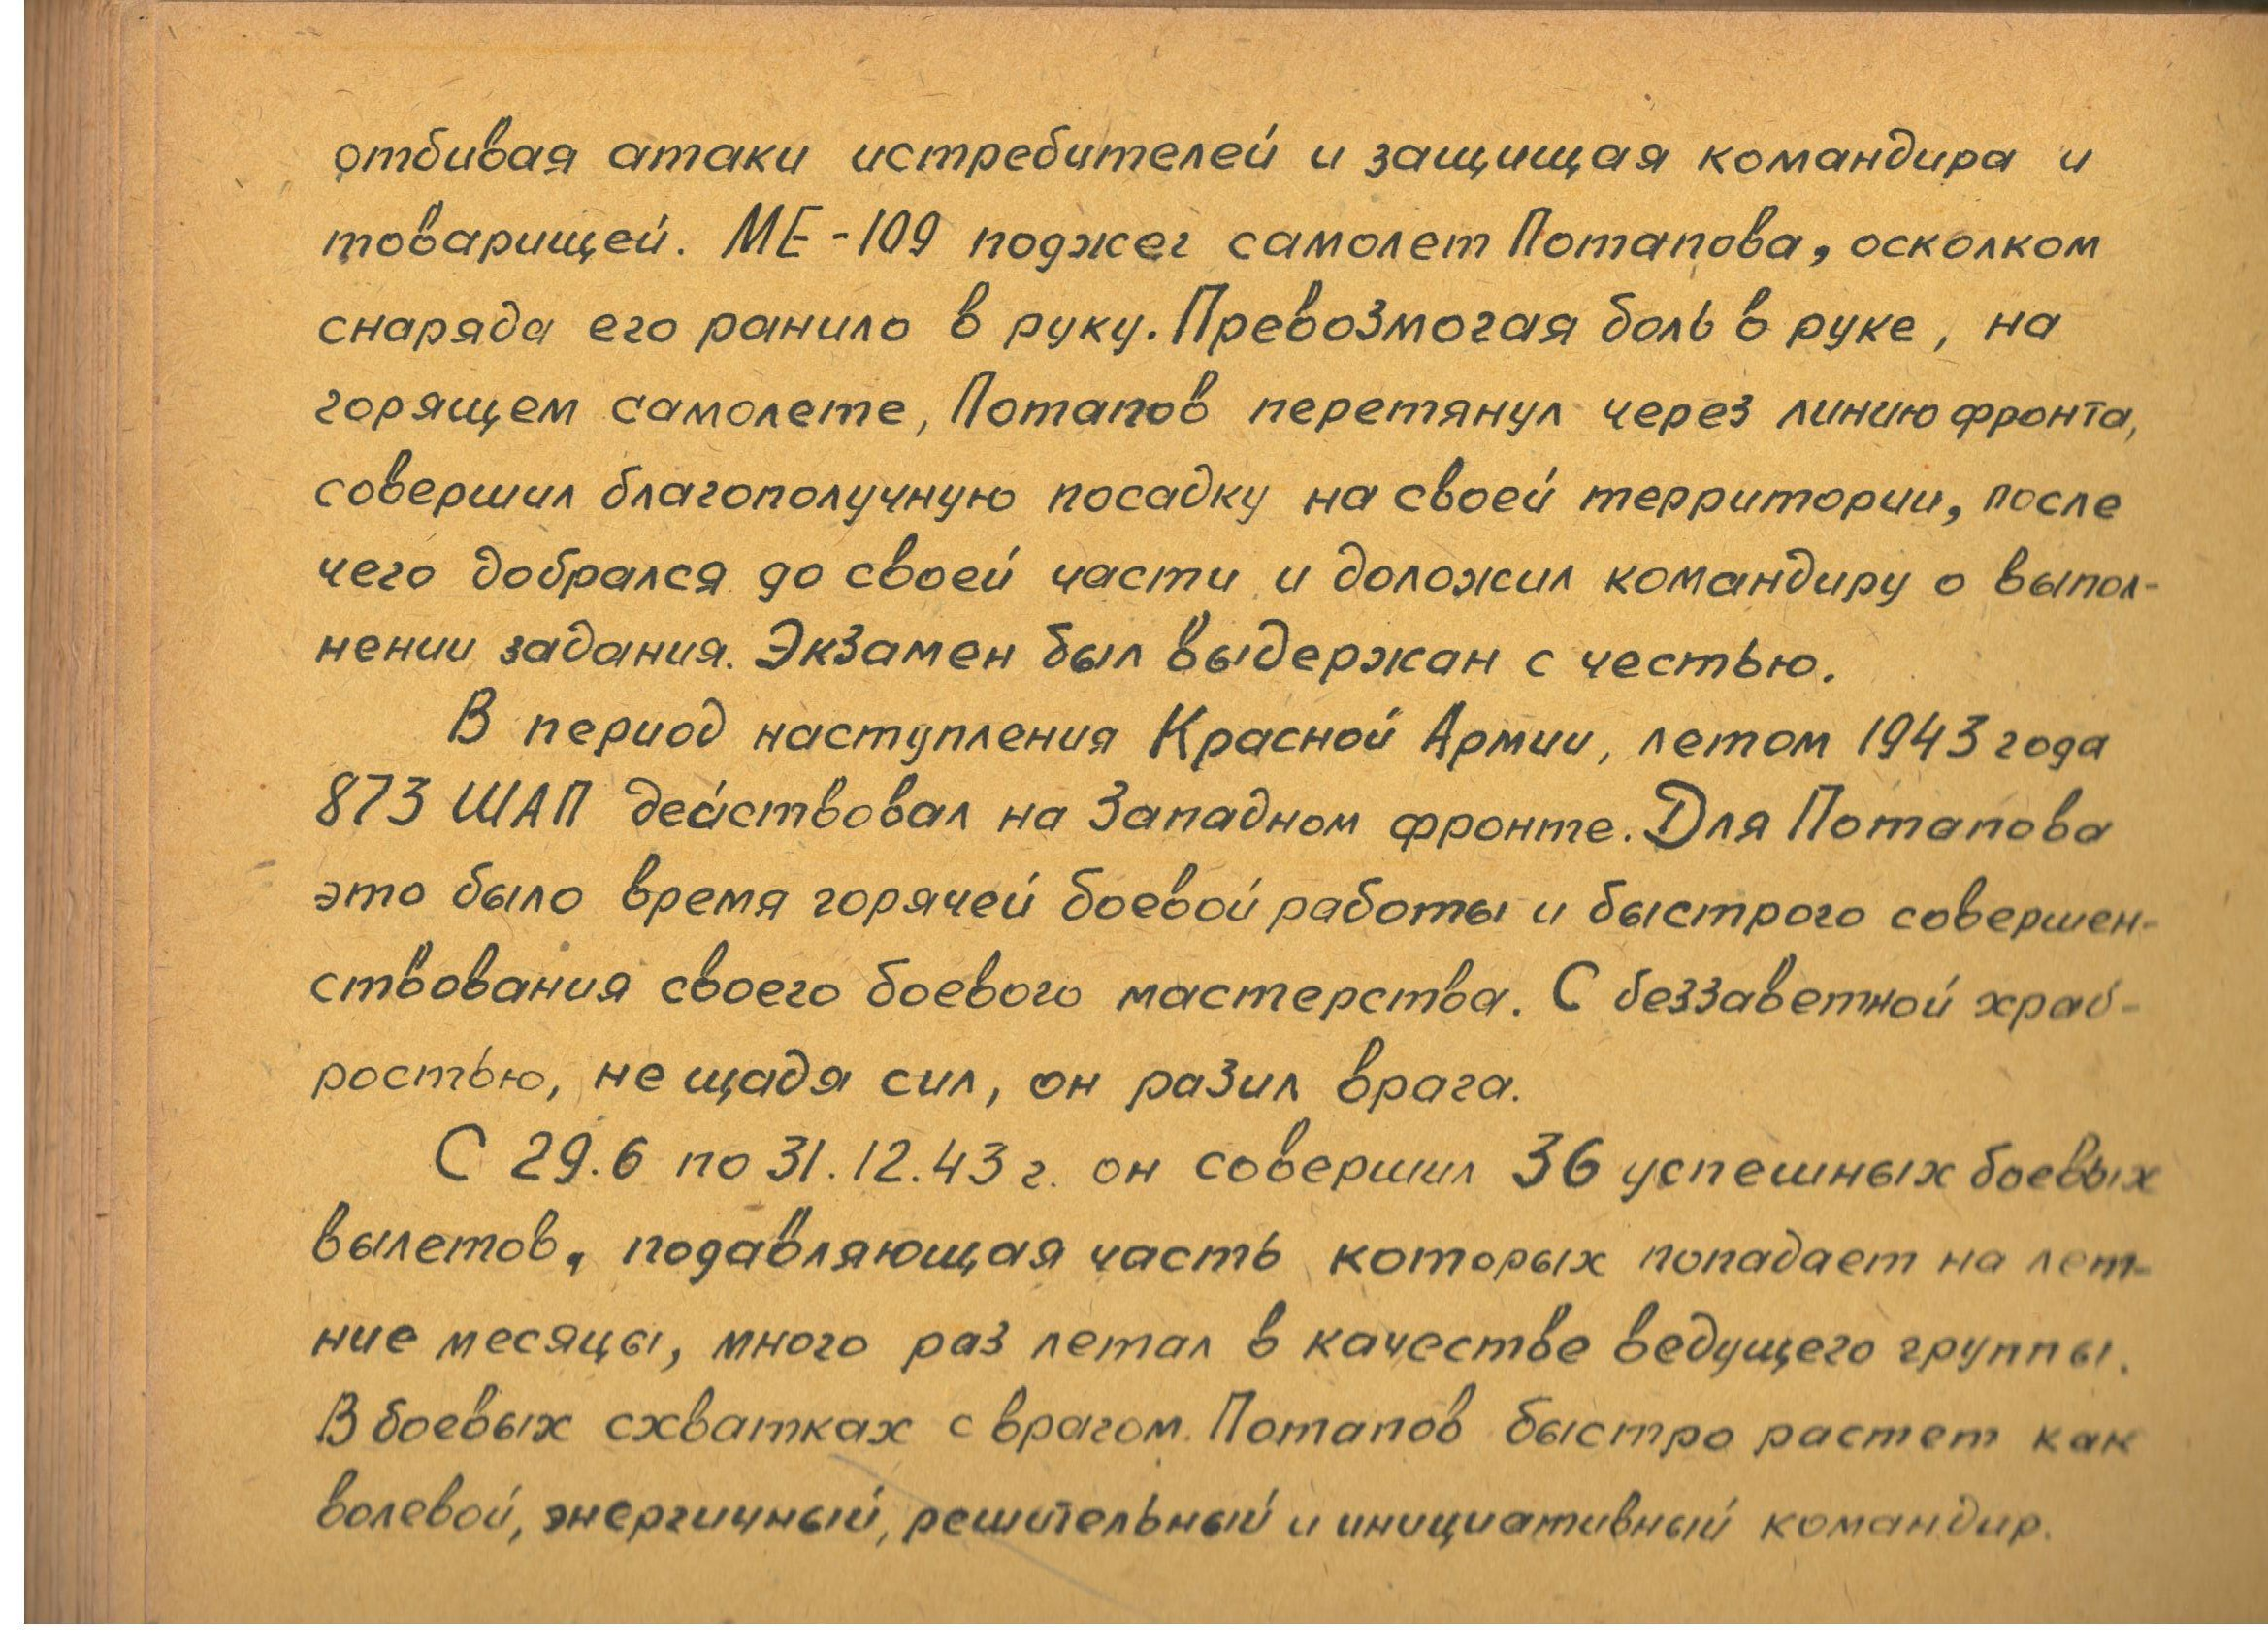 отбивая атаки истребителей и защищая командира и
товарищей. МЕ-109 поджег самолет Потапова, осколком
снаряда его ранило в руку. Превозмогая боль в руке, на
горящем самолете, Потапов перетянул через линию фронта,
совершил благополучную посадку на своей территории, после
чего добрался до своей части и доложил командиру о выпол-
нении задания. Экзамен был выдержан с честью.
В период наступления Красной Армии, летом 1943 года
873 ШАП действовал на Западном фронте. Для Потапова
это было время горячей боевой работы и быстрого совершен-
ствования своего боевого мастерства. С беззаветной храб-
ростью, не щадя сил, он разил врага.
С 29.6 по 31.12.43 г. он совершил 36 успешных боевых
вылетов, подавляющая часть которых попадает на лет-
ние месяцы, много раз летал в качестве ведущего группы.
В боевых схватках с врагом Потапов быстро растет как
волевой, энергичный, решительный и инициативный командир.